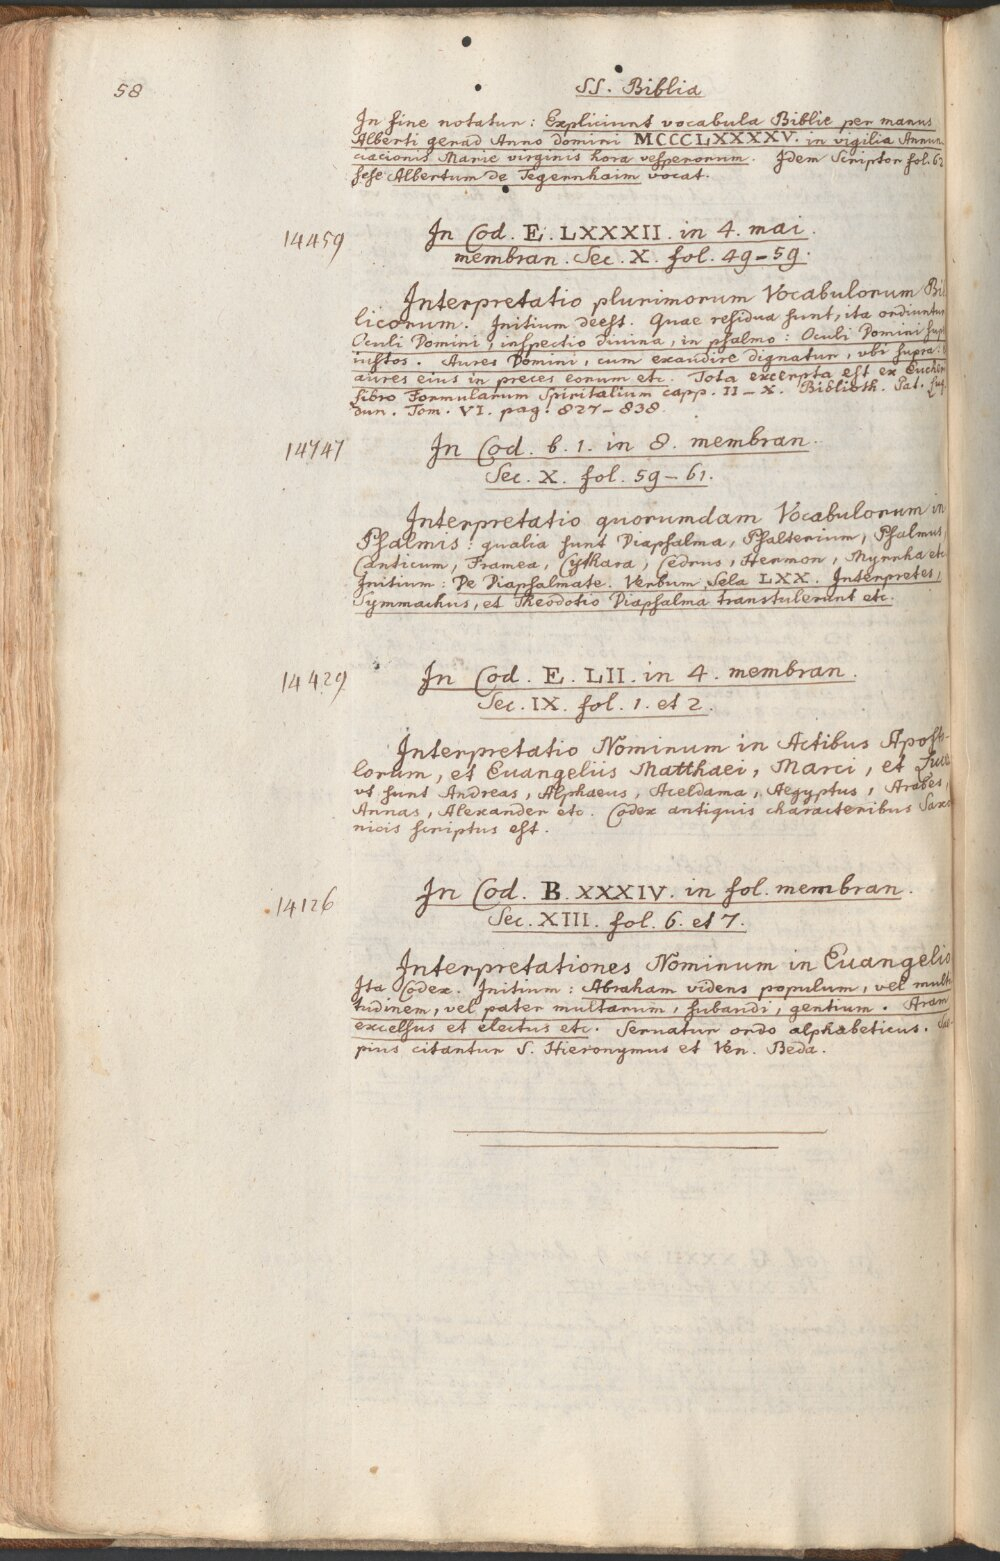 58
SS. Biblia
In fine notatur: Expliciunt vocabula Biblie per manus
Alberti gerad Anno domini MCCCLXXXXV. in vigilia Annun
ciacionis Marie virginis hora vesperorum. Idem Scriptor fol. 62
sese Albertum de Tegernhaim vocat.
14459
In Cod. E. LXXXII. in 4. mai.
membran. Sec. X. fol. 49-59.
Interpretatio plurimorum Vocabulorum Bi
licorum. Initium deest. Quae residua sunt, ita ordiuntur
Oculi Domini, inspectio diuina, in psalmo: Oculi Domini sup
iustos. Aures Domini, cum exaudire dignatur, vbi supra:
aures eius in preces eorum etc. Tota excerpta est ex Eucherii
libro Formularum Spiritalium capp. II-X. Biblioth. Pat. Lug
dun. Tom. VI. pag. 827-838.
14747
In Cod. b. 1. in 8. membran.
Sec. X. fol. 59-61.
Interpretatio quorumdam Vocabulorum in
Psalmis: qualia sunt Diapsalma, Psalterium, Psalmus,
Canticum, Framea, Cythara, Cedrus, Hermon, Myrrha etc
Initium: De Diapsalmate. Verbum, Sela LXX. Interpretes,
Symmachus, et Theodotio Diapsalma transtulerunt etc.
14429
In Cod. E. LII. in 4. membran.
Sec. IX. fol. 1. et 2.
Interpretatio Nominum in Actibus Aposto-
lorum, et Euangeliis Matthaei, Marci, et Luca
vt sunt Andreas, Alphaeus, Aceldama, Aegyptus, Arabes,
Annas, Alexander etc. Codex antiquis characteribus Saxo
nicis scriptus est.
14126
In Cod. B. XXXIV. in fol. membran.
Sec. XIII. fol. 6. et 7.
Interpretationes Nominum in Euangelio
Ita Codex. Initium: Abraham videns populum, vel multi
tudinem, vel pater multarum, subaudi, gentium. Aram
excelsus et electus etc. Seruatur ordo alphabeticus. Sae-
pius citantur S. Hieronymus et Ven. Beda.